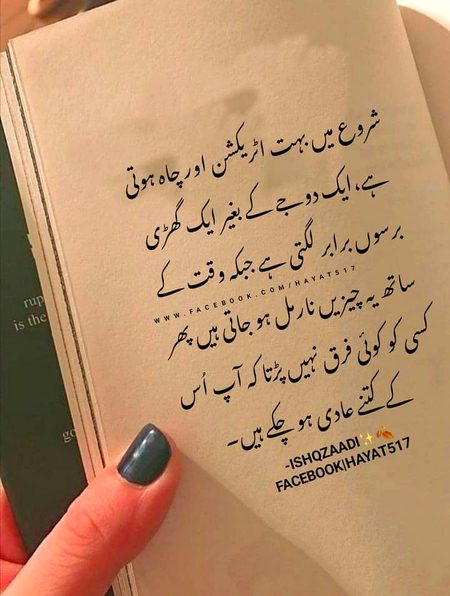 شروع میں بہت اٹریکشن اور چاہ ہوتی
ہے، ایک دوجے کے بغیر ایک گھڑی
برسوں برابر لگتی ہے جبکہ وقت کے
WWW.FACEBOOK.COM/HAYAT517
ساتھ یہ چیزیں نارمل ہو جاتی ہیں پھر
کسی کو کوئی فرق نہیں پڑتا کہ آپ اُس
کے کتنے عادی ہو چکے ہیں۔
-ISHQZAADI✨🍂
FACEBOOK|HAYAT517
rup
is the
go